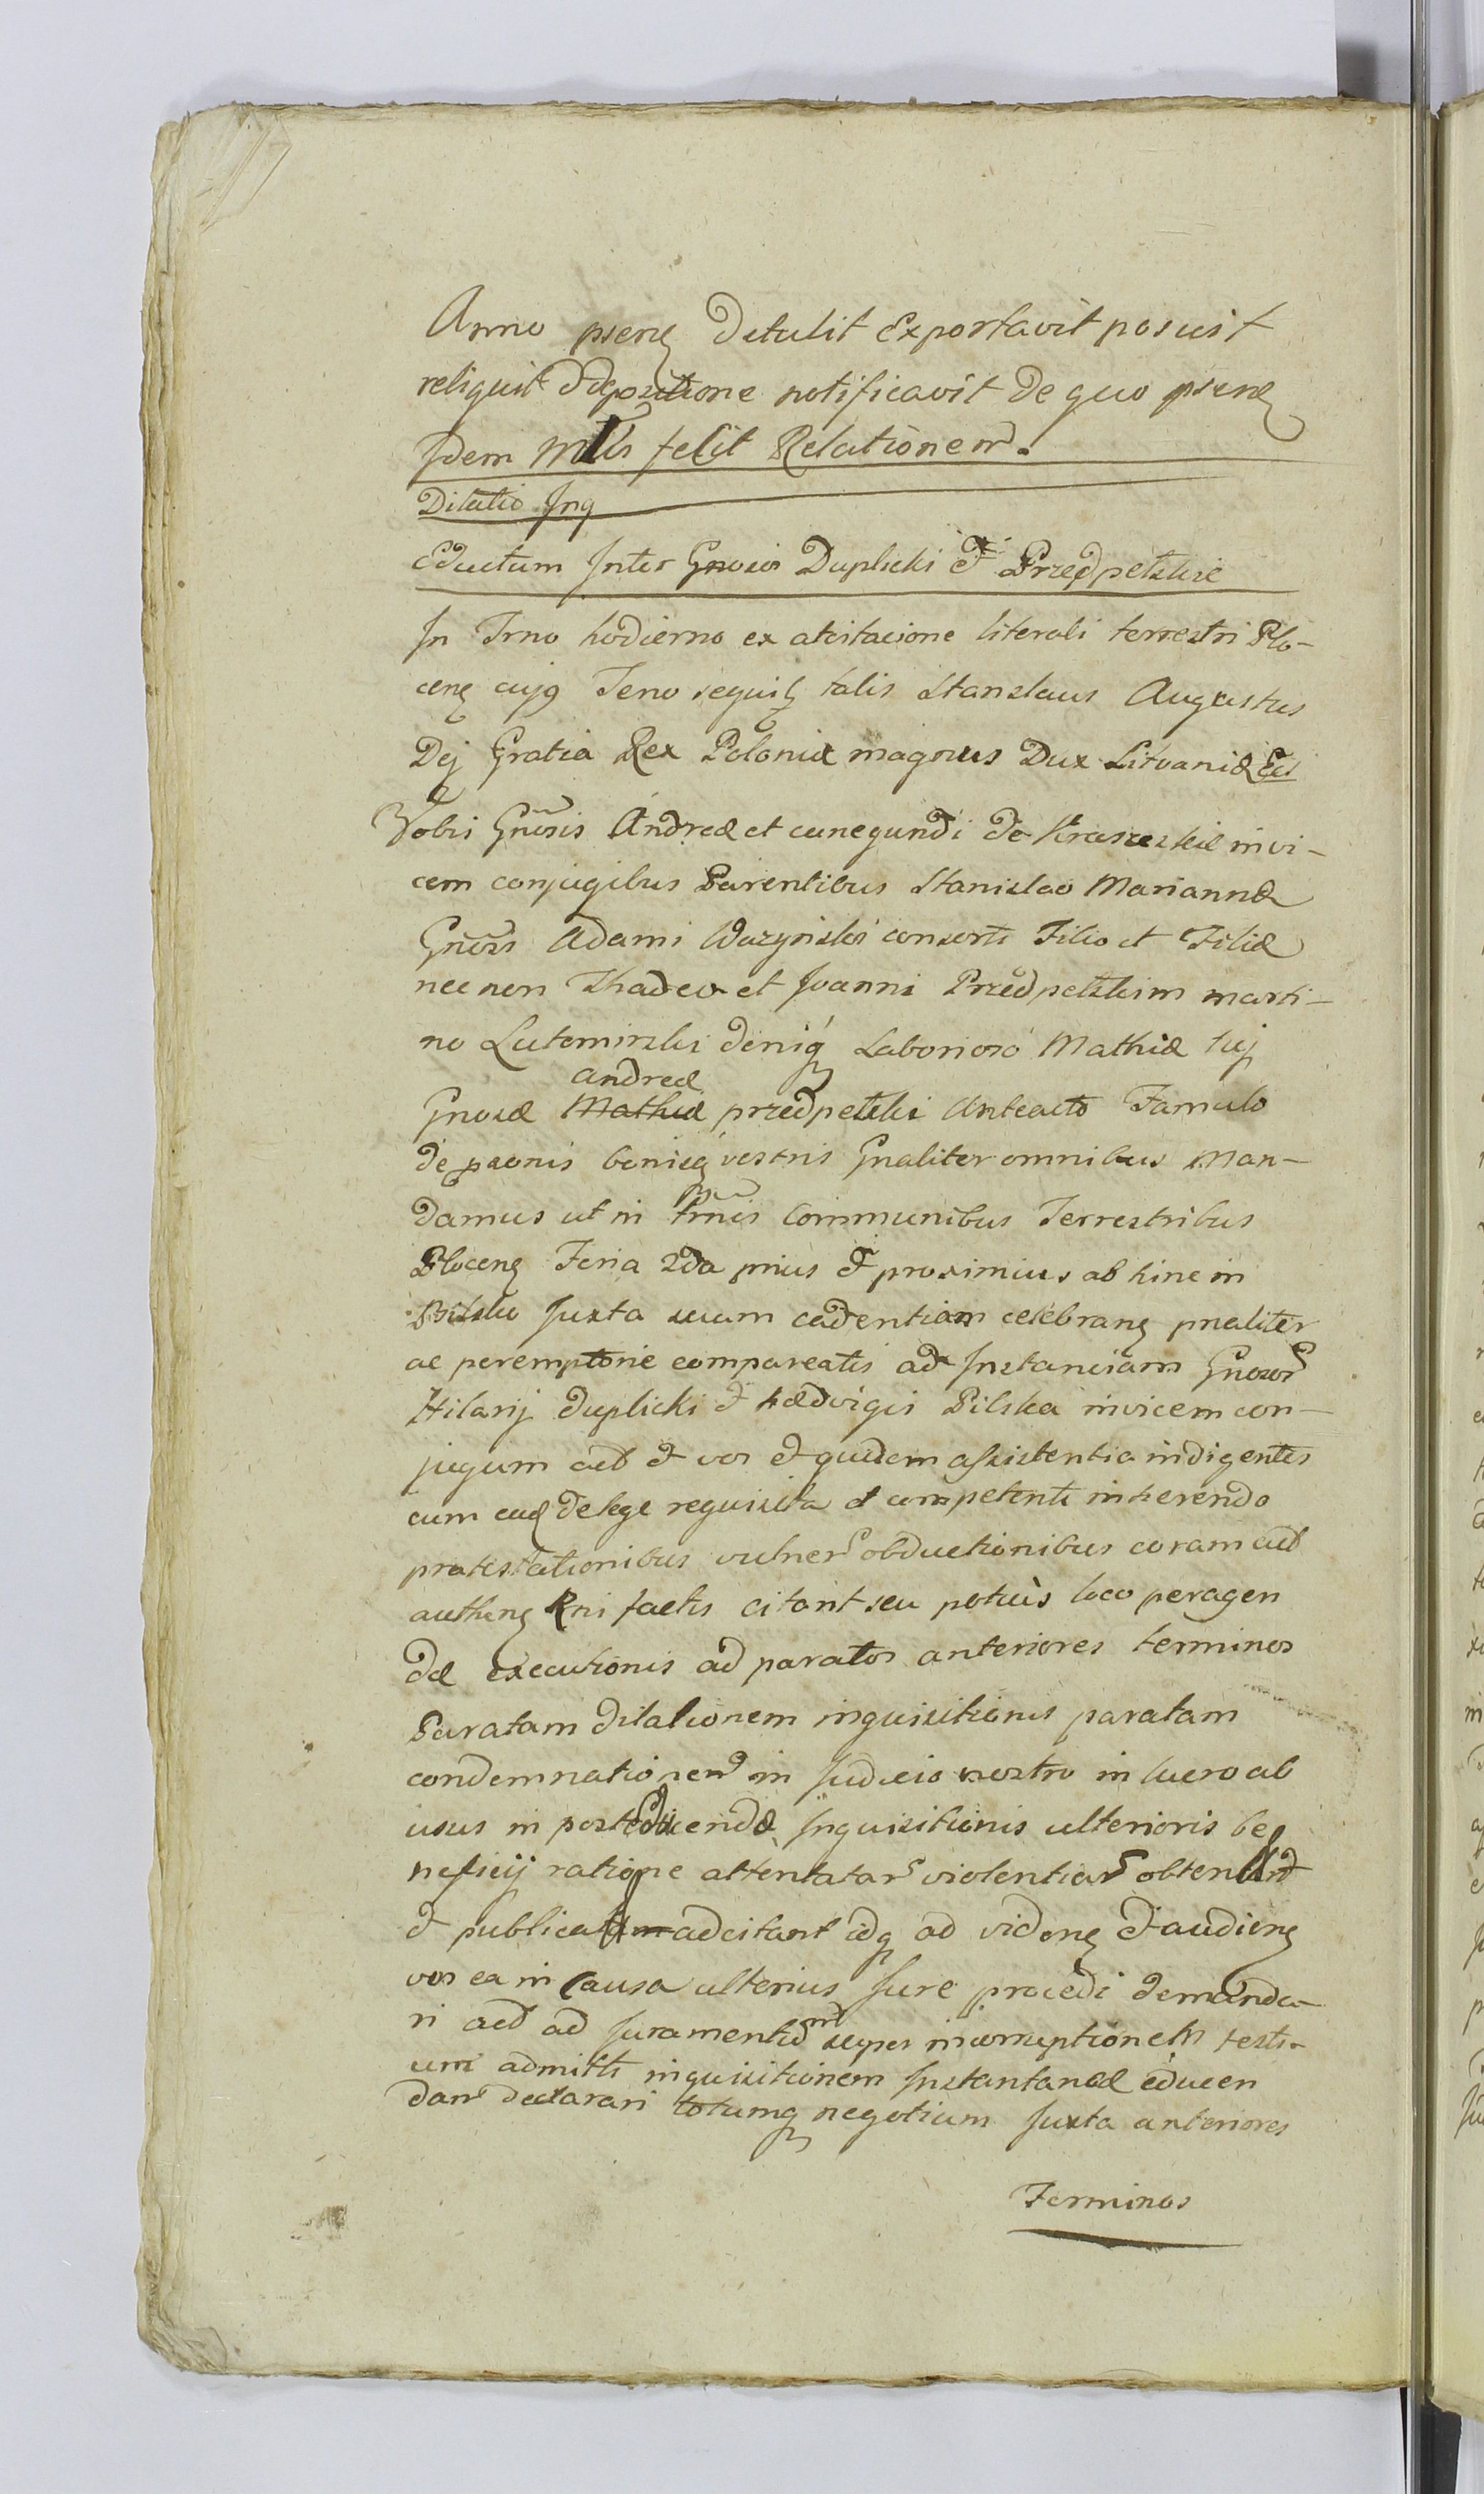 Anno psenę Detulit Exportavit posuit
reliquit d depositione notificavit de quo psenę
Idem Mtlis fecit Relationem.
Dilatio Inq
Eductum Inter Gnosos Duplicki et Przedpełskie
In Trno hodierno ex atcitacione literali terrestri Plo-
cenę cujg Tenor sequitę talis Stanslaus Augustus
Dej Gratia Rex Poloniæ magnus Dux Litvaniæ Ect
Vobis Gnosis Andreæ et cunegundi de Kraszeskie invi-
cem conjugibus Parentibus Stanislao Mariannæ
Gnosi Adami Wazynski consorti Filio et Filiæ
nec non Thadeo et Joanni Przedpełskim marti-
no Lutomirski deniq Laborioso Mathiæ tuj
andreæ
Gnosæ Mathiæ przedpełski Anteacto Famulo
de psonis bonisq vestris Gnaliter omnibus Man-
damus ut in Trnis Communibus Terrestribus
Plocenę Feria 2da prius et proximius ab hinc in
Bilsko Juxta suam cadentiam celebranę pnaliter
ac peremptorie compareatis ad Instanciam Gnosor
Hilarij Duplicki et hædvigis Pilska invicem con-
jugum act et vos et quidem assistentia indigentes
cum ead de lege requisita et competenti inherendo
protestationibus vulner obductionibus coram act
authenę Rni factis citant seu potius loco peragen
dæ executionis ad paratos anteriores terminos
Paratam dilationem inquisitionis paratam
condemnationem in Judicio nostro in lucro ab
usus in post educendæ Inquisitionis ulterioris be
neficij ratione attentatar violentiar obtent
et publicat adcitant idq ad videnę et audienę
vos ea in Causa ulterius Jure procedi demanda-
ri act ad Juramentum super incorruptionem testi-
um admitti inquisitionem Instantaneæ educen
dam declarari totumq negotium Juxta anteriores
Terminos